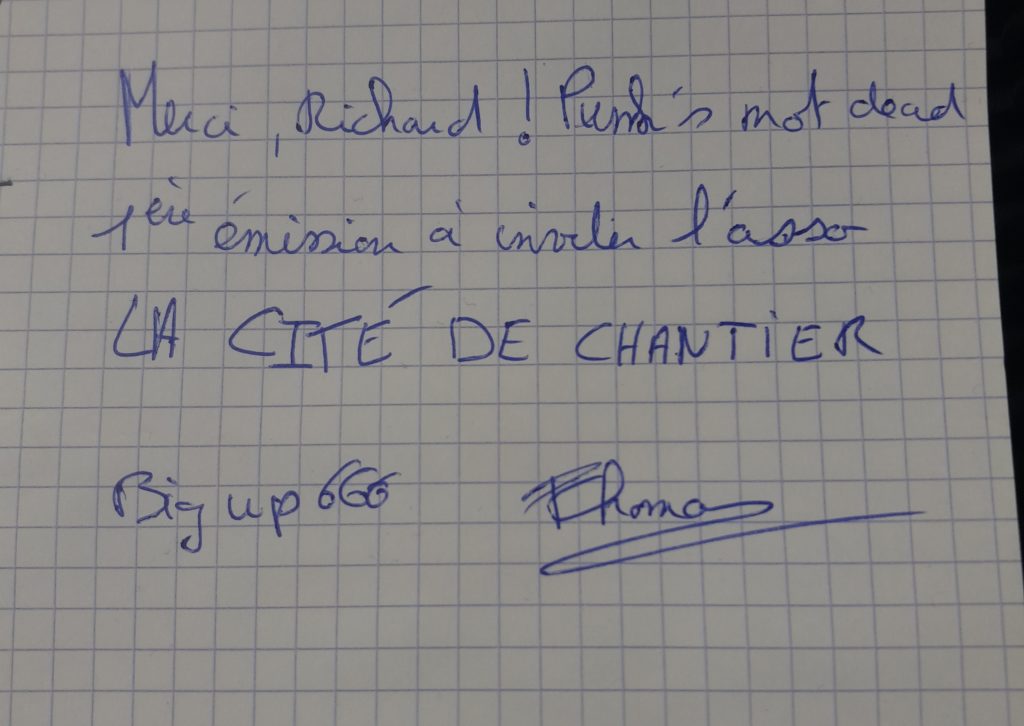 Merci, Richard ! Punk's not dead
1ère émission à inviter l'asso
LA CITÉ DE CHANTiER
Big up 666 Thomas